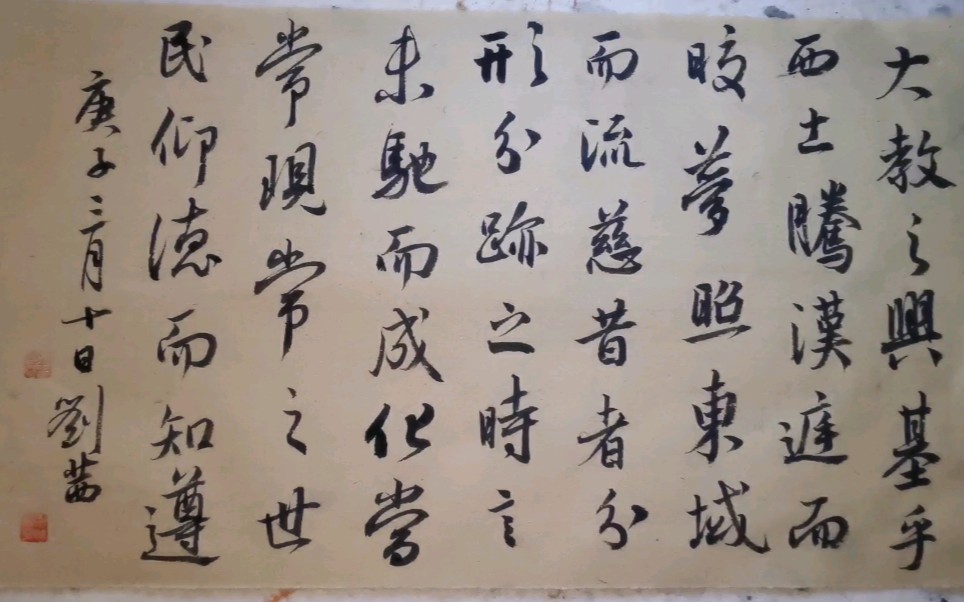 大教之興基乎
西土騰漢庭而
晈夢照東域
而流慈昔者分
形分跡之時言
未馳而成化當
常現常之世
民仰德而知遵
庚子三月十日劉茜